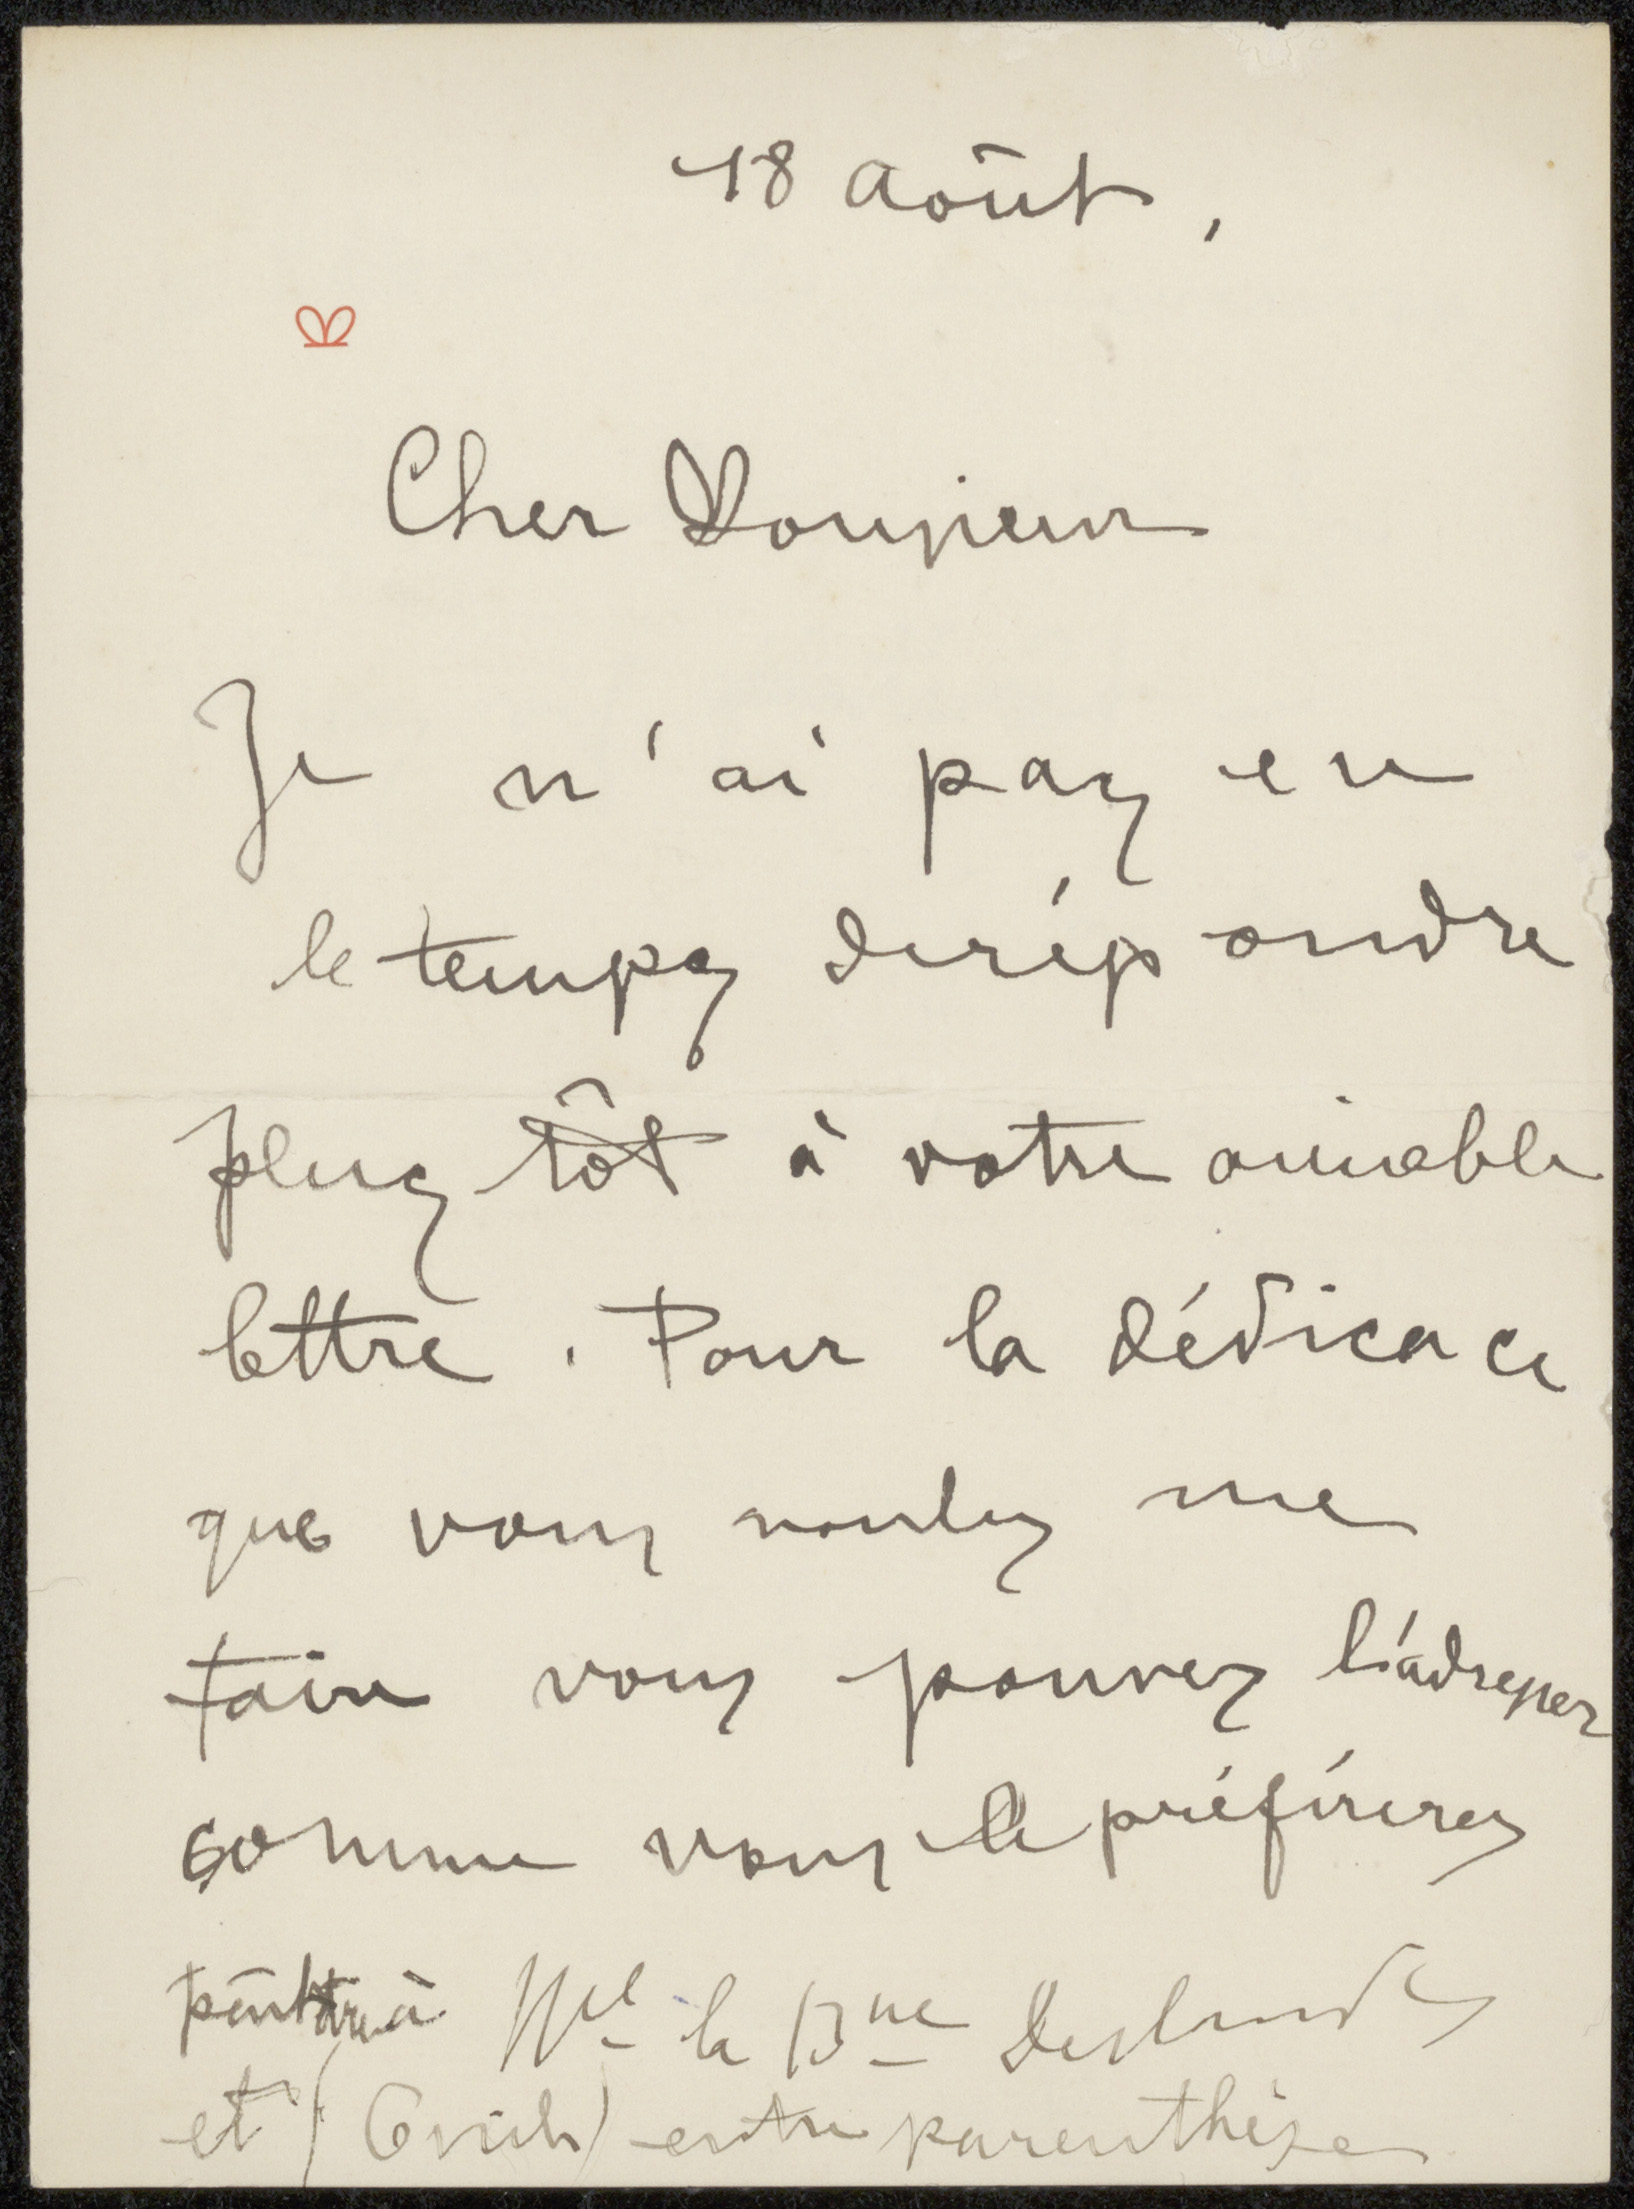 18 Août,
Cher Monsieur
Je n'ai pas eu
le temps de répondre
plus tôt à votre aimable
lettre. Pour la dédicace
que vous voulez me
faire vous pouvez l'adresser
comme vous le préférerez
peut être à Me la Bne Deslandes
et (Ossit) entre parenthèse